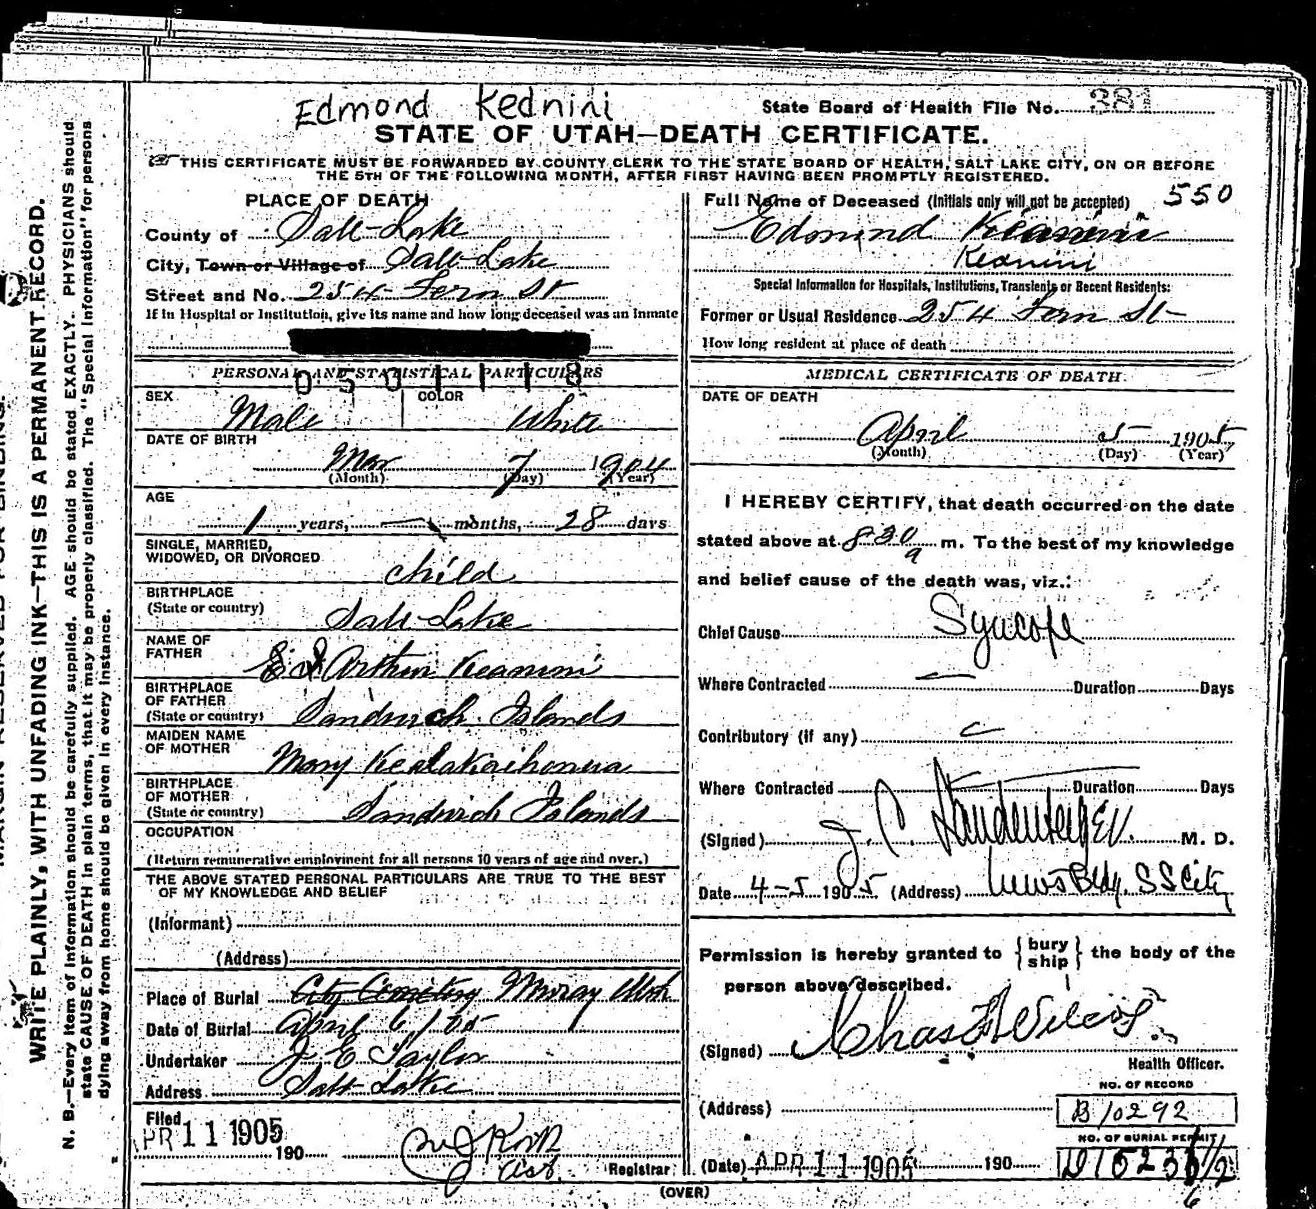 Edmond Keanini
State Board of Health File No. 381
STATE OF UTAH—DEATH CERTIFICATE.
THIS CERTIFICATE MUST BE FORWARDED BY COUNTY CLERK TO THE STATE BOARD OF HEALTH, SALT LAKE CITY, ON OR BEFORE
THE 5TH OF THE FOLLOWING MONTH, AFTER FIRST HAVING BEEN PROMPTLY REGISTERED.
PLACE OF DEATH
County of Salt Lake
City, Town or Village of Salt Lake
Street and No. 254 Fern St
If in Hospital or Institution, give its name and how long deceased was an Inmate
Full Name of Deceased (Initials only will not be accepted) 550
Edmund Keanini
Keanini
Special Information for Hospitals, Institutions, Transients or Recent Residents:
Former or Usual Residence 254 Fern St
How long resident at place of death
PERSONAL AND STATISTICAL PARTICULARS
0501118
SEX Male COLOR White
DATE OF BIRTH
Mar 7 1904
(Month) (Day) (Year)
AGE
1 years, — months, 28 days
SINGLE, MARRIED,
WIDOWED, OR DIVORCED child
BIRTHPLACE
(State or country) Salt Lake
NAME OF
FATHER Arthur Keanini
BIRTHPLACE
OF FATHER
(State or country) Sandwich Islands
MAIDEN NAME
OF MOTHER Mary
BIRTHPLACE
OF MOTHER
(State or country) Sandwich Islands
OCCUPATION
(Return remunerative employment for all persons 10 years of age and over.)
THE ABOVE STATED PERSONAL PARTICULARS ARE TRUE TO THE BEST
OF MY KNOWLEDGE AND BELIEF
(Informant)
(Address)
Place of Burial City Cemetery Murray Utah
Date of Burial April 6/05
Undertaker J E Taylor
Address Salt Lake
Filed
PR 11 1905
190
Asst. Registrar
MEDICAL CERTIFICATE OF DEATH.
DATE OF DEATH
April 5 1905
(Month) (Day) (Year)
I HEREBY CERTIFY, that death occurred on the date
stated above at 8 30 a m. To the best of my knowledge
and belief cause of the death was, viz.:
Chief Cause Syncope
Where Contracted — Duration Days
Contributory (if any)
Where Contracted Duration Days
(Signed) J. C. M. D.
Date 4-5 1905 (Address) News Bldg. City
Permission is hereby granted to {bury ship} the body of the
person above described.
(Signed) Chas
Health Officer.
NO. OF RECORD
(Address) B10292
NO. OF BURIAL PERMIT
(Date) APR 11 1905 190
(OVER)
WRITE PLAINLY, WITH UNFADING INK—THIS IS A PERMANENT RECORD.
N. B.—Every item of information should be carefully supplied. AGE should be stated EXACTLY. PHYSICIANS should
state CAUSE OF DEATH in plain terms, that it may be properly classified. The "Special Information" for persons
dying away from home should be given in every instance.